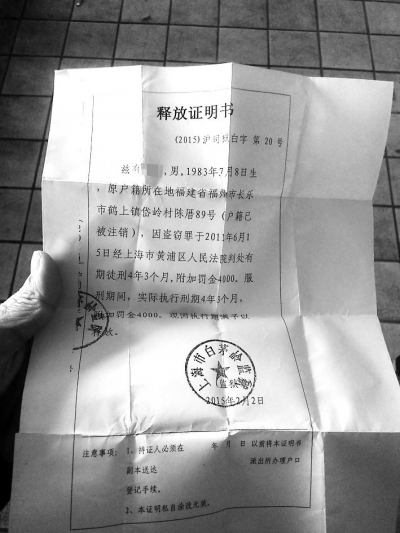 释放证明书
(2015)沪司狱白字 第 20 号
兹有 ,男,1983年7月8日生
,原户籍所在地福建省福州市长乐
市鹤上镇岱岭村陈厝89号(户籍已
被注销),因盗窃罪于2011年6月1
5日经上海市黄浦区人民法院判处有
期徒刑4年3个月,附加罚金4000。服
刑期间,实际执行刑期4年3个月,
附加罚金4000。现因执行期满予以
释放。
上海市白茅岭监狱
2015年2月2日
注意事项:1、持证人必须在 年 月 日 以前将本证明书
副本送达 派出所办理户口
登记手续。
2、本证明私自涂改无效。